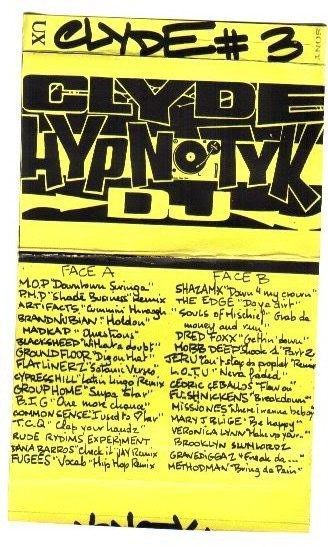 UX
CLYDE # 3
SONY
CLYDE
HYPNOTYK
DJ
FACE A
M.O.P "Downtown Swinga"
P.H.D "Shade Business" Remix
ARTIFACTS "Cummin' through"
BRAND NUBIAN "Hold on"
MADKAP "Questions"
BLACKSHEEP "What's a doubt"
GROUND FLOOR "Dig on that"
FLATLINERZ "Satanic Verses"
CYPRESS HILL "Latin lingo Remix
GROUP HOME "Supa Star"
B.I.G "One more chance"
COMMON SENSE "I used 2 Her"
T.C.Q "Clap your handz"
RUDE RYDIMS EXPERIMENT
DANA BARROS "Check it" JAY Remix
FUGEES "Vocab" Hip Hop Remix
FACE B
SHAZAMX "Down 4 my crown"
THE EDGE "Do ya dirt"
"SOULS OF Mischief" Grab da
money and run"
DRED FOXX "Gettin' down"
MOBB DEEP "Shook 1" Part 2
JERU "Can't stop da prophet" Remix
L.O.T.U "Never faded"
CEDRIC CEBALLOS "Flow on"
FUSHNICKENS "Breakdown"
MISSJONES "Where I wanna be boy"
MARY J BLIGE "Be happy"
VERONICA LYNN "Make up your..
BROOKLYN SLUMLORDZ
GRAVEDIGGAZ "Freak da..."
METHODMAN "Bring da Pain"